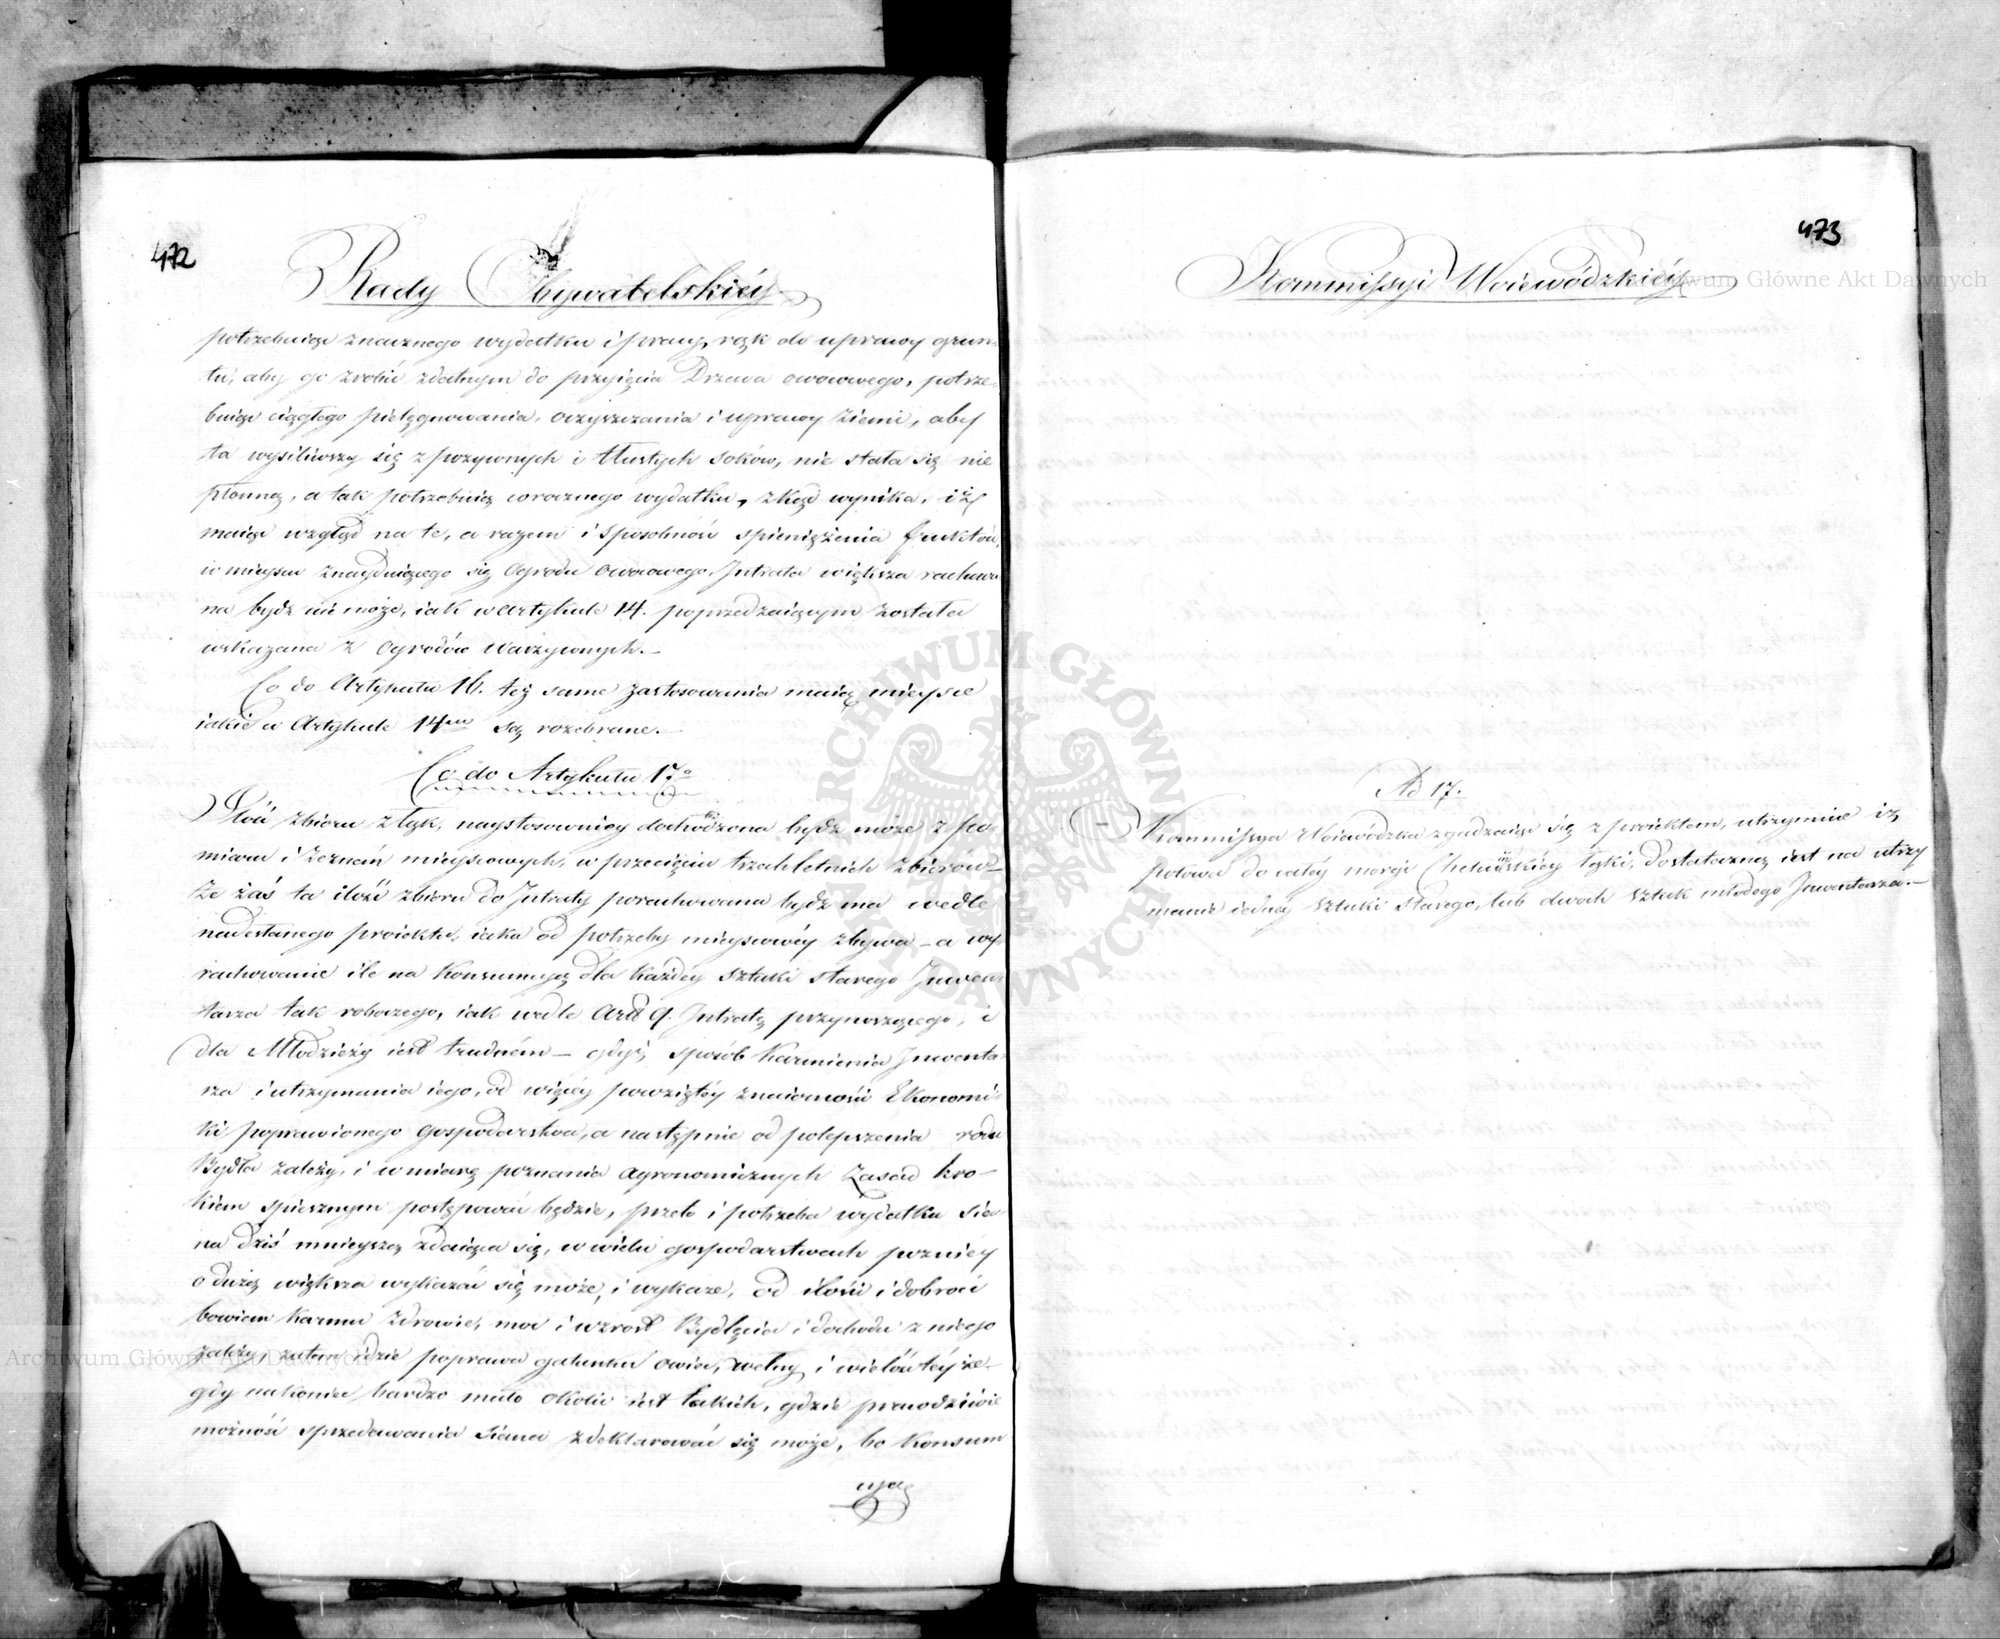 472
Rady Obywatelskiéy
potrzebuiąc znacznego wydatku i pracy rąk do uprawy grun-
tu, aby go zrobić zdatnym do przyięcia Drzewa owocowego, potrze-
buiąc ciągłego pielęgnowania, oczyszczania i uprawy ziemi, aby
ta wysiliwszy się z pożywnych i tłustych soków, nie stała się nie
płonną, a tak potrzebuię corocznego wydatku, zkąd wynika, iż
maiąc wzgląd na te, a razem i sposobność spieniężenia fruktów,
w mieyscu znayduiącego się Ogrodu owocowego, Intrata większa rachowa
na bydź nie może, iak w Artykule 14. poprzedzaiącym została
wskazana z Ogrodów Warzywnych.
Co do Artykułu 16. też same zastosowania maią mieysce
iakie w Artykule 14m są rozebrane.
Co do Artykułu 17o
Ilość zbioru z łąk, naystosowniey dochodzona bydź może z po-
miaru i zeznań mieyscowych, w przecięciu trzechletnich zbiorów
że zaś ta ilość zbioru do Intraty porachowana bydź ma wedle
nadesłanego proiektu, iaka od potrzeby mieyscowéy zbywa – a wy
rachowanie ile na Konsumcyą dla każdey sztuki starego Inwen
tarza tak roboczego, iak wedle Art 9. Intratę przynoszącego, i
dla Młodzieży iest trudném – gdyż sposób karmienia Inwenta-
rza i utrzymania iego, od więcéy powziętéy znaiomości Ekonomi-
ki poprawionego gospodarstwa, a następnie od polepszenia rodu
Bydła zależy, i w miarę poznania agronomicznych Zasad kro-
kiem spiesznym postępować będzie, przeto i potrzeba wydatku sia-
na dziś mnieyszą zdaiąca się, w wielu gospodarstwach pozniéy
o dużą większa wykazać się może, i wykaże, od ilości i dobroci
bowiem karmu zdrowie, moc i wzrost Bydlęcia i dochodu z niego
zależy, zatem idzie poprawa gatunku owiec, wełny i wielość téyże
gdy nakoniec bardzo mało okolic iest takich, gdzie prawdziwie
możność sprzedawania Siana zdeklarować się może, bo Konsum
cya
473
Kommissyi Woiewódzkiéy
Ad 17.
Kommissya Woiewódzka zgadzaiąc się z proiektem, utrzymuie iż
połowa do całéy morgi Chełmińskiéy łąki, dostateczną iest na utrzy
manie iednéy sztuki starego, lub dwoch sztuk młodego Inwentarza.
Archiwum Główne Akt Dawnych
Archiwum Główne Akt Dawnych
ARCHIWUM GŁÓWNE AKT DAWNYCH